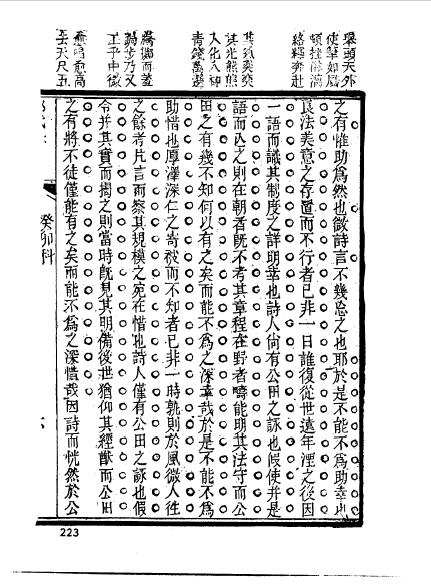 舉頭天外
使筆如風
頓挫淋漓
絡繹奔赴
其致奕奕
其光熊熊
入神
青錢萬選
步乃又
工乎中
愈高
去天尺五
之有惟助為然也微詩言不幾忘之也耶於是不能不為助幸也
良法美意之存置而不行者已非一日誰復從世遠年湮之後因
一語而識其制度之詳明幸也詩人尚有公田之詠也假使并是
語而亾之則在朝者旣不考其章程在野者疇能明其法守而公
田之有幾不知何以有之矣而能不為之深幸哉於是不能不為
助惜也厚澤深仁之旁被而不知者已非一時孰則於風微人往
之餘考片言而察其規模之宛在惜也詩人僅有公田之詠也假
令并其實而之則當時旣見其明備後世猶仰其經猷而公田
之有將不徒僅能有之矣而能不為之深惜哉因詩而恍然於公
癸卯科
223